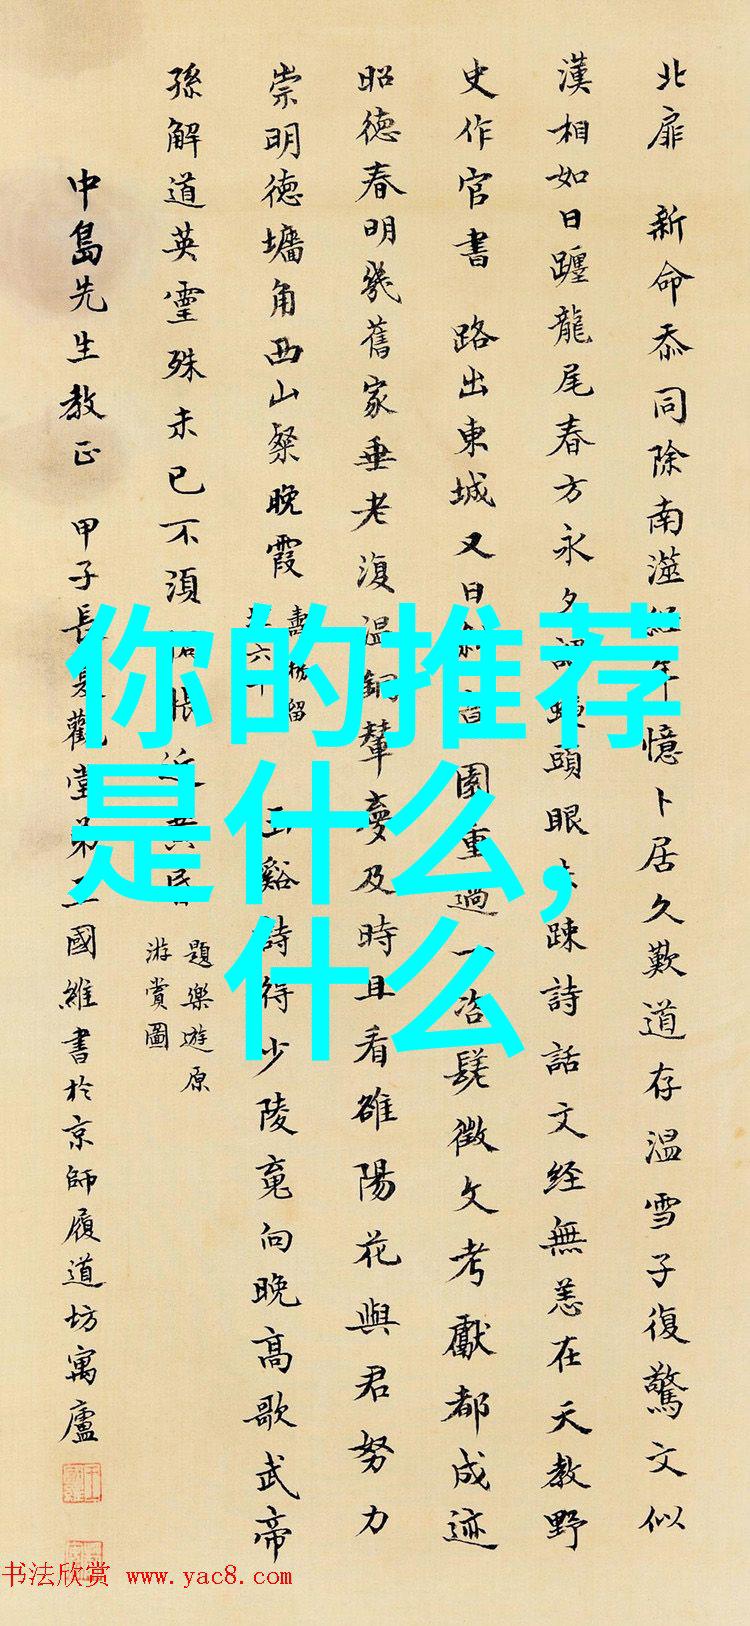 北扉 新命忝同除南澨經年憶卜居久歎道存温雪子復驚文似
漢相如日躔龍尾春方永夕詔頭眼未疎詩話文经無恙在天教野
史作官書 路出東城又日斜 園重過一咨嗟徵文考獻都成迹
昭德春明幾舊家垂老復温銅輦夢及時且看雒陽花與君努力
崇明德墉角西山粲晚霞
壽枌留
六十
玉谿詩得少陵竟向晚高歌武帝
孫解道英靈殊未已不須惆悵近黄昏
題樂遊原
游賞圖
中島先生教正 甲子長夏觀堂弟王國維書於京師履道坊寓廬
你的推荐
是什么,
什么
书法欣赏 www.yac8.com